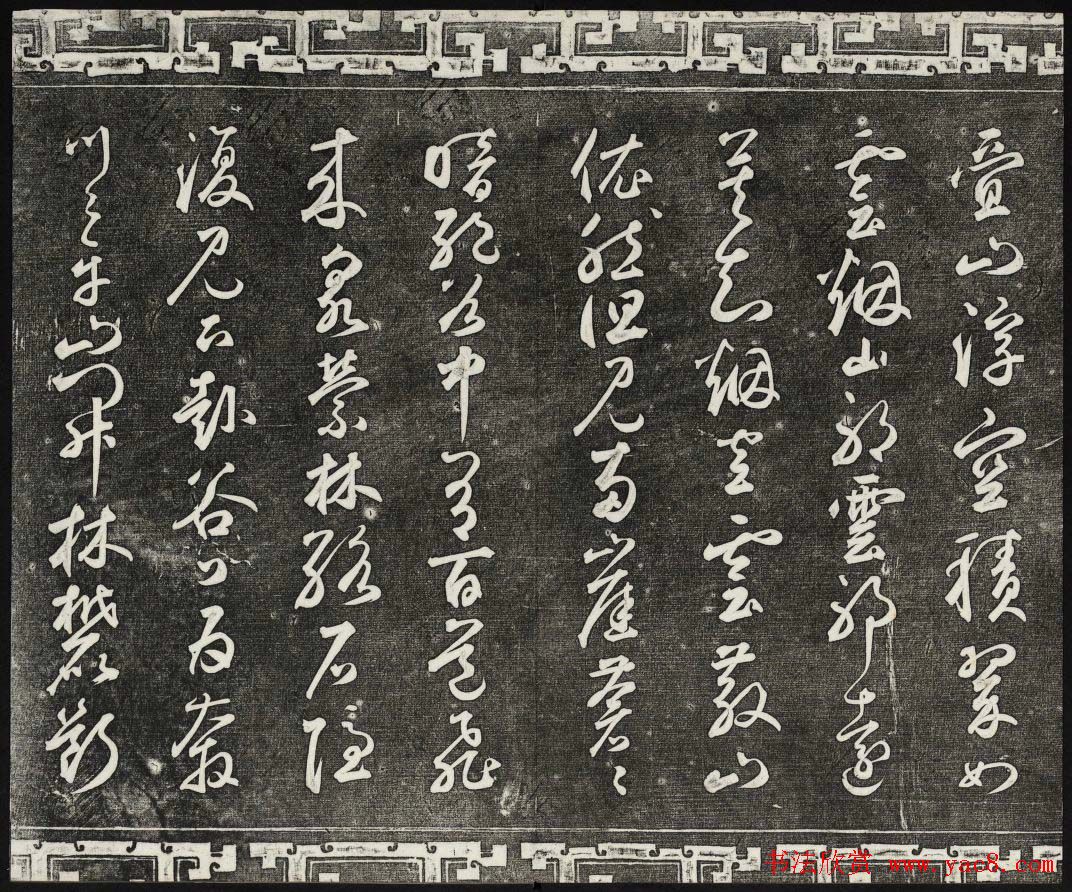 疊山浮空積翠如
雲烟山耶雲耶遠
莫知烟空雲散山
依然但見兩崖蒼〻
暗絕谷中有百道飛
來泉縈林絡石隱
復見下赴谷口為奔
川〻平山開林麓斷
书法欣赏 www.yac8.com